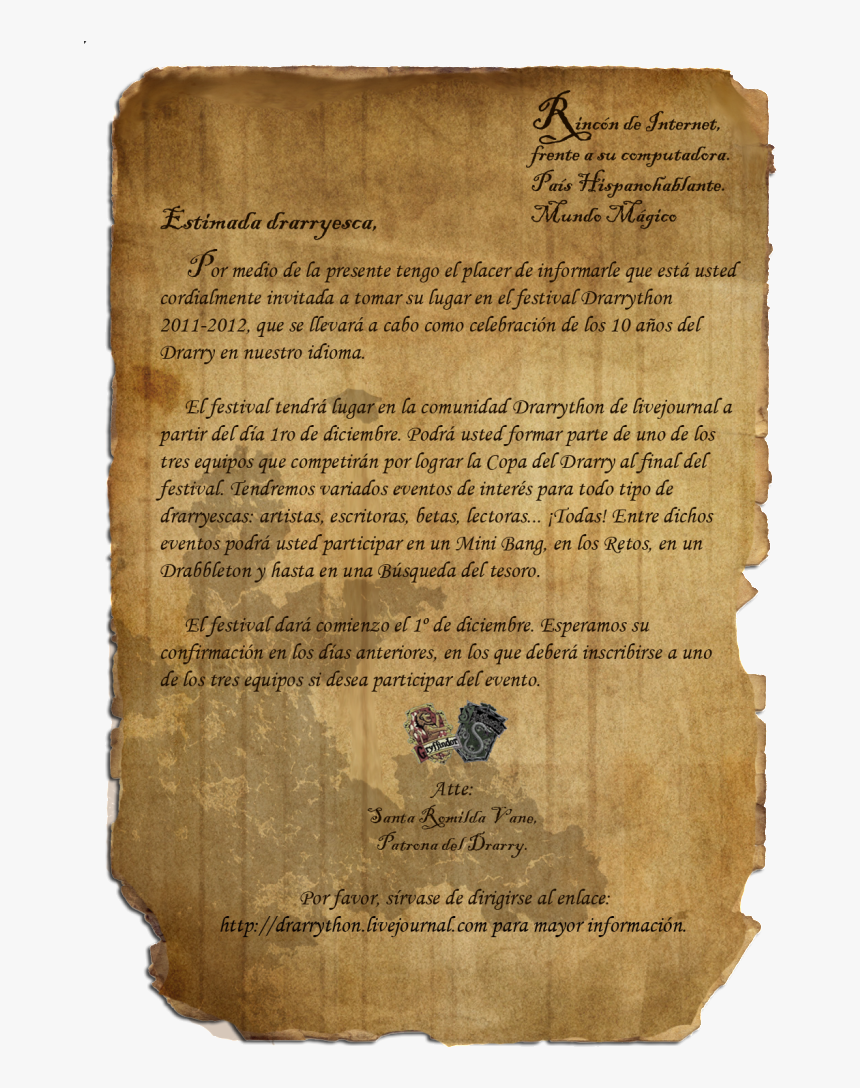 Rincón de Internet,
frente a su computadora.
País Hispanohablante.
Mundo Mágico
Estimada drarryesca,
Por medio de la presente tengo el placer de informarle que está usted
cordialmente invitada a tomar su lugar en el festival Drarrython
2011-2012, que se llevará a cabo como celebración de los 10 años del
Drarry en nuestro idioma.
El festival tendrá lugar en la comunidad Drarrython de livejournal a
partir del día 1ro de diciembre. Podrá usted formar parte de uno de los
tres equipos que competirán por lograr la Copa del Drarry al final del
festival. Tendremos variados eventos de interés para todo tipo de
drarryescas: artistas, escritoras, betas, lectoras... ¡Todas! Entre dichos
eventos podrá usted participar en un Mini Bang, en los Retos, en un
Drabbleton y hasta en una Búsqueda del tesoro.
El festival dará comienzo el 1º de diciembre. Esperamos su
confirmación en los días anteriores, en los que deberá inscribirse a uno
de los tres equipos si desea participar del evento.
Gryffindor
Atte:
Santa Romilda Vane,
Patrona del Drarry.
Por favor, sírvase de dirigirse al enlace:
http://drarrython.livejournal.com para mayor información.